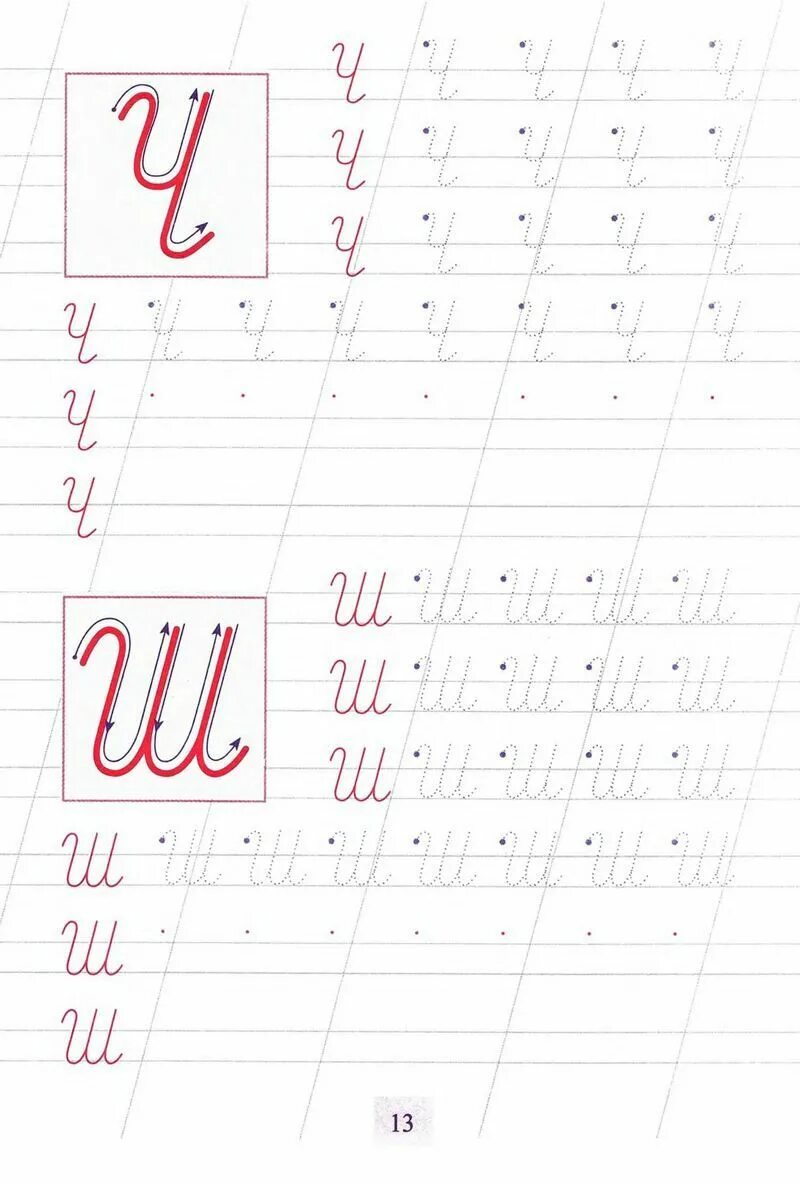 Ч
Ч Ч Ч Ч Ч
Ч Ч Ч Ч Ч
Ч Ч Ч Ч Ч
Ч Ч Ч Ч Ч Ч Ч Ч
Ч
Ч
Ш
Ш Ш Ш Ш Ш
Ш Ш Ш Ш Ш
Ш Ш Ш Ш Ш
Ш Ш Ш Ш Ш Ш Ш Ш
Ш
Ш
13